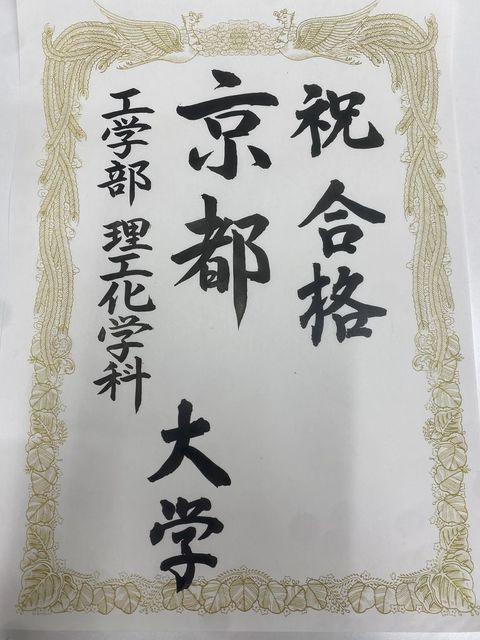 祝 合格
京都 大学
工学部 理工化学科